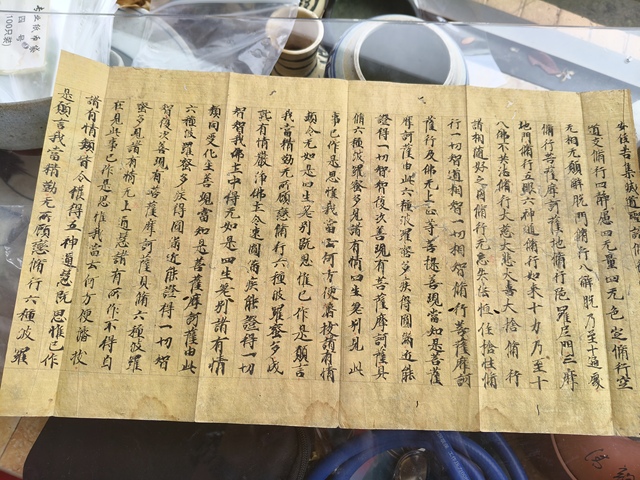 安住苦集滅道聖諦脩行
道支脩行四靜慮四无量四无色定脩行空
无相无願解脫門脩行八解脫乃至十遍處
脩行菩薩摩訶薩地脩行陁羅尼門三摩
地門脩行五眼六神通脩行如来十力乃至十
八佛不共法脩行大慈大悲大喜大捨脩行
諸相隨好脩行无忘失法恒住捨性脩
行一切智道相智一切相智脩行菩薩摩訶
薩行及佛无上正等菩提善現當知是菩薩
摩訶薩由此六種波羅蜜多疾得圓滿近能
證得一切智智復次善現有菩薩摩訶薩具
脩六種波羅蜜多見諸有情四生差別見此
事已作是思惟我當云何方便濟拔諸有情
類令无如是四生差別既思惟已作是願言
我當精勤无所顧戀脩行六種波羅蜜多成
熟有情嚴淨佛土令速圓滿疾能證得一切
智智我佛土中得无如是四生差別諸有情
類同受化生善現當知是菩薩摩訶薩由此
六種波羅蜜多疾得圓滿近能證得一切智
智復次善現有菩薩摩訶薩具脩六種波羅
蜜多見諸有情无上通慧諸有所作不得自
在見此事已作是思惟我當云何方便濟拔
諸有情類皆令獲得五神通慧既思惟已作
是願言我當精勤无所顧戀脩行六種波羅
专业纸币袋
四号
(100只装)